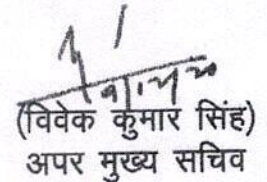 (विवेक कुमार सिंह)
अपर मुख्य सचिव